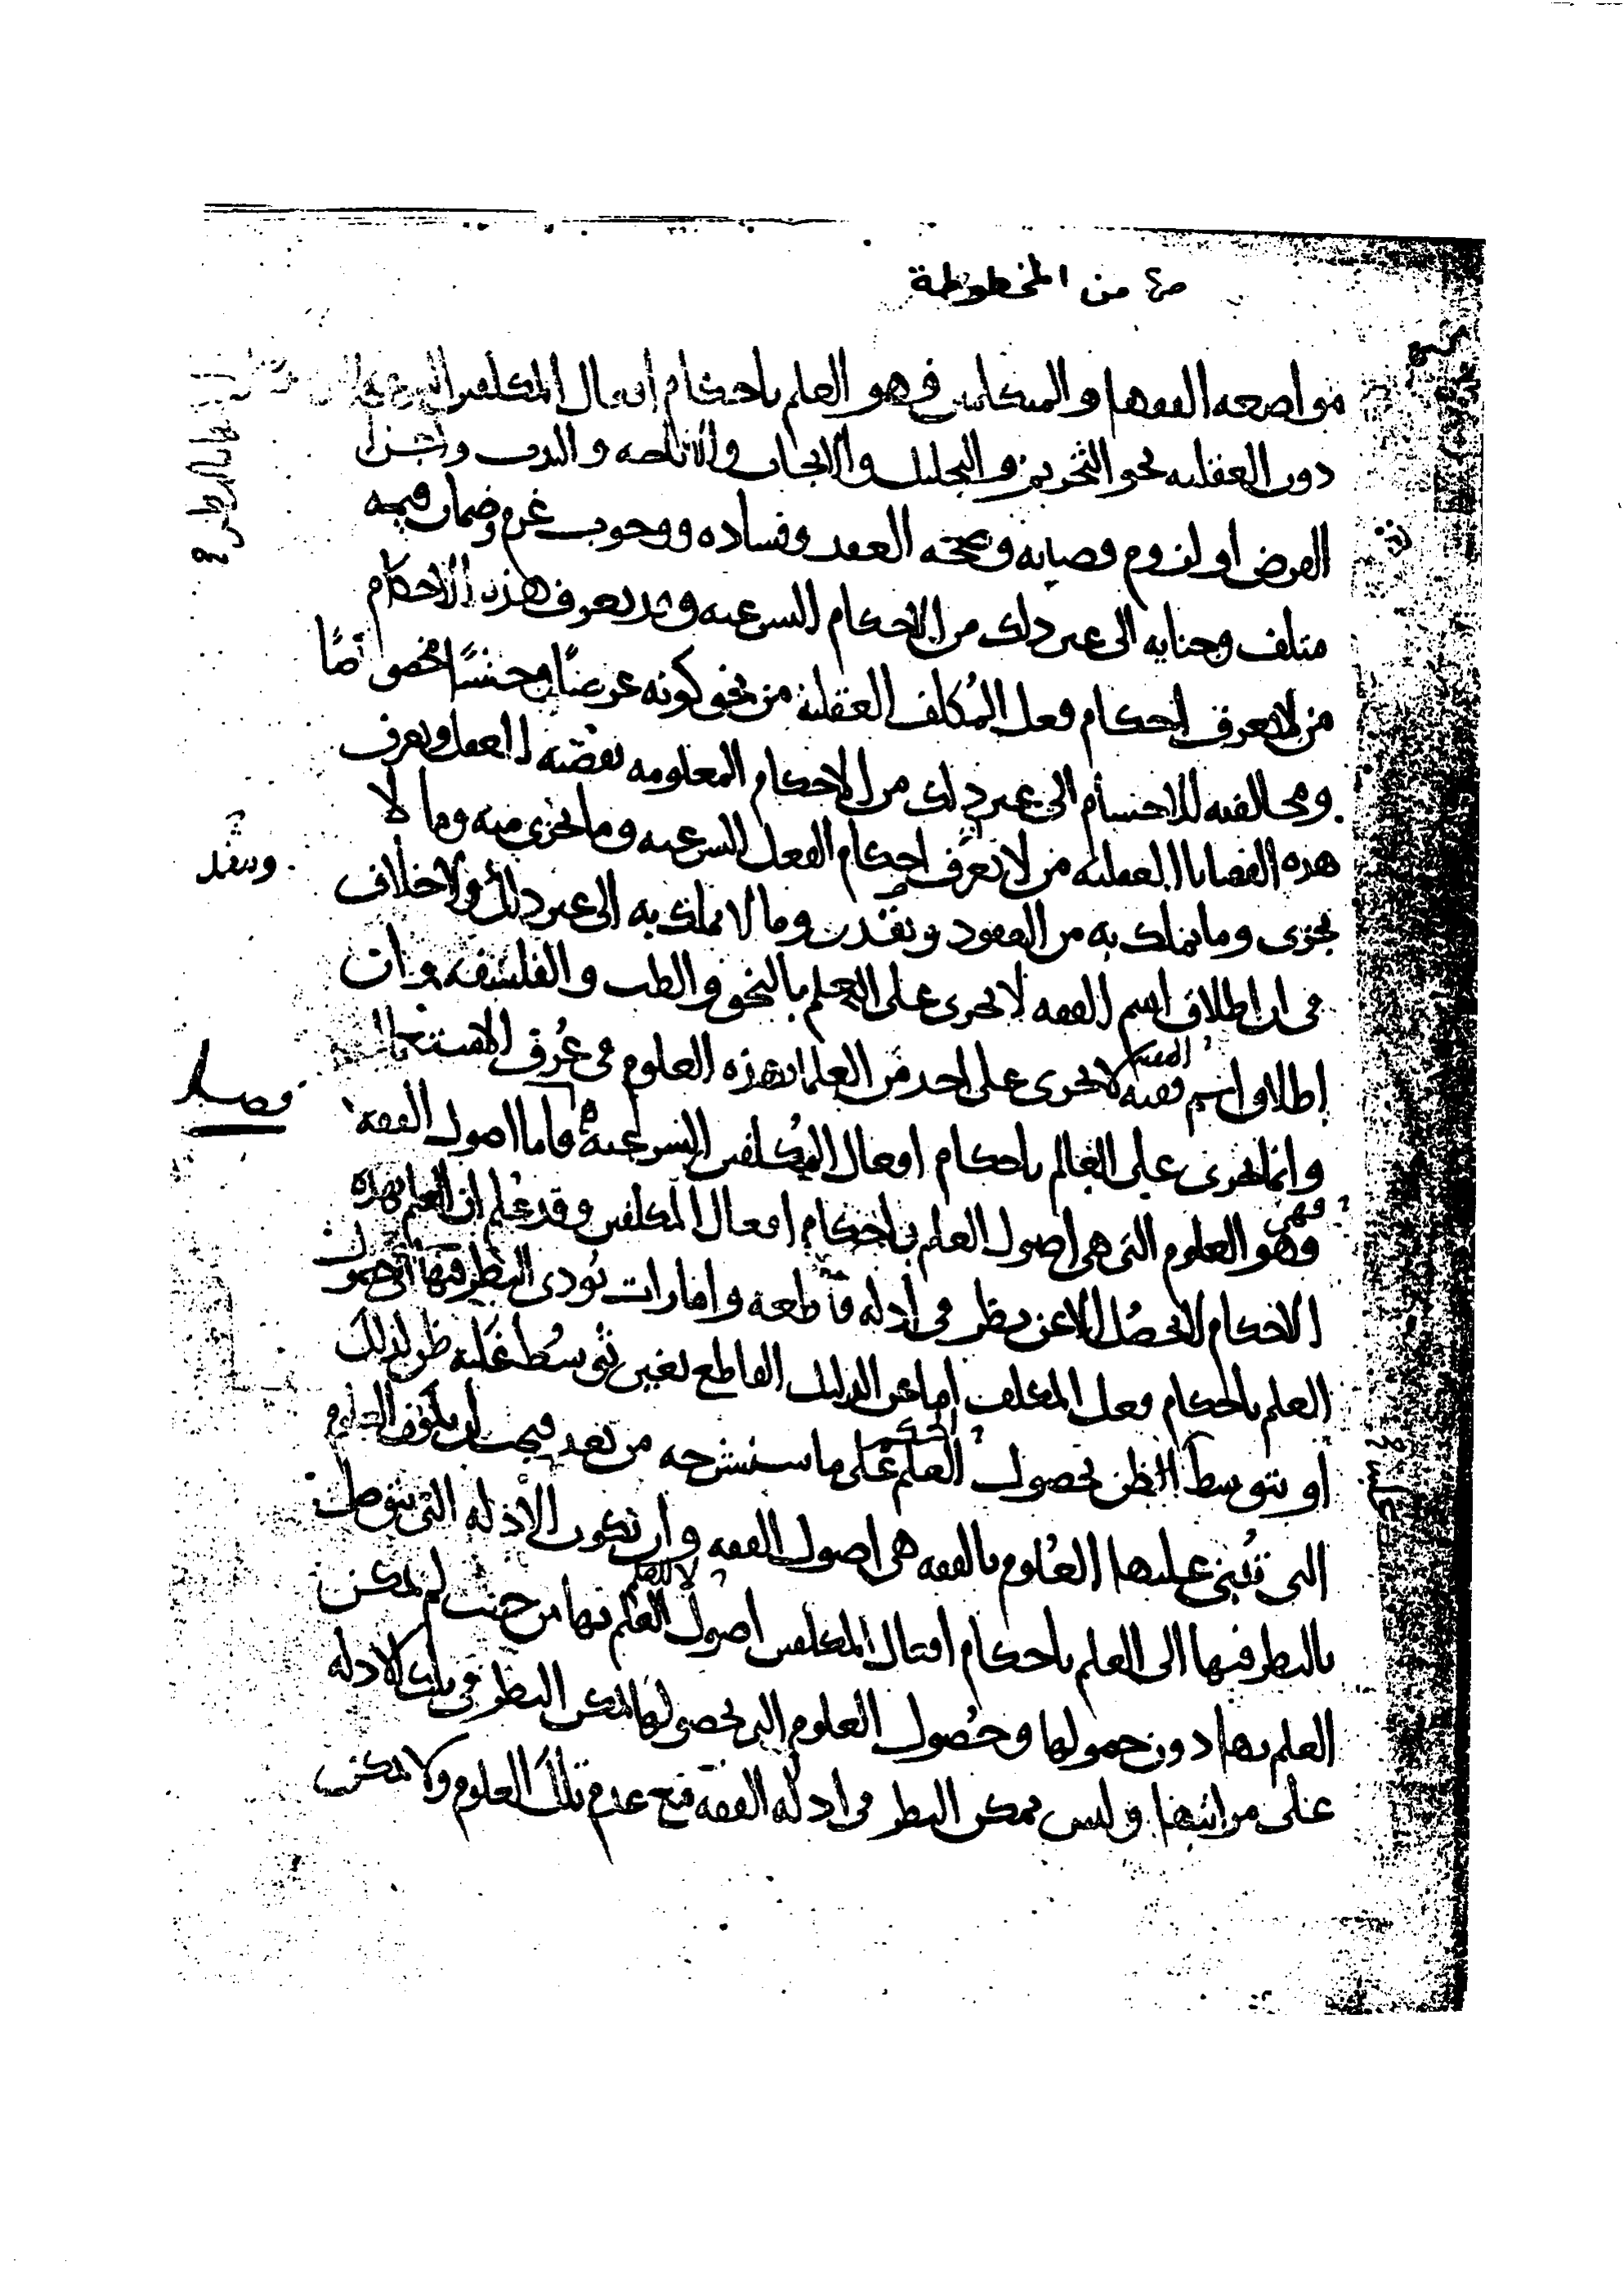 ص٤ من المخطوطة
مواضعه الفقها والمتكلمين فهو العلم باحكام افعال المكلفين الشرعية
دون العقليه نحو التحريم والتحليل والايجاب والاباحه والندب واجزا
الفرض او لزوم قضايه وصحه العقد وفساده ووجوب غرم وضمان قيمه
متلف وجنايه الى غير ذلك من الاحكام الشرعيه وقد يعرف هذه الاحكام
من لا يعرف احكام فعل المكلف العقلية من نحو كونه عرضًا وجنسًا مخصوصًا
ومخالفته للاجسام الى غير ذلك من الاحكام المعلومه بقضية العقل ويعرف
هذه القضايا العقليه من لا يعرف احكام الفعل الشرعيه وما يجزي منه وما لا
يجزى وما يملك به من العقود وينفذ وما لا يملك به الى غير ذلك ولا خلاف
وينفذ
فى ان اطلاق اسم الفقه لا يجرى على العلم بالنحو والطب والفلسفه وان
اطلاق اسم فقيه لا يجرى على احد من العلما بهذه العلوم فى عُرف الاستعمال
الفقيه
وانما يجرى على العالم باحكام افعال المكلفين الشرعية واما اصول الفقه
فصل
فهي
وهو العلوم التى هى اصول العلم باحكام افعال المكلفين وقد عُلم ان العلم بهذه
الاحكام لا يحصُل الا عن نظر فى ادله قاطعه وامارات يُودى النظر فيها الى حصول
العلم باحكام فعل المكلف اما عن الدليل القاطع بغير توسُط غلبه ظن لذلك
او بتوسط الظن لحصول العلم على ما سنشرحه من بعد فيجب ان يكون العلوم
الحكم
التى تُبنى عليها العُلوم بالفقه هى اصول الفقه وان تكون الادله التى يتوصل
بالنظر فيها الى العلم باحكام افعال المكلفين اصول العلم بها من حيث لم يمكن
العلم بها دون حصولها وحُصول العلوم التى بحصولها يمكن النظر فى تلك الادله
على مراتبها وليس يمكن النظر فى ادله الفقه مع عدم تلك العلوم ولا يمكن